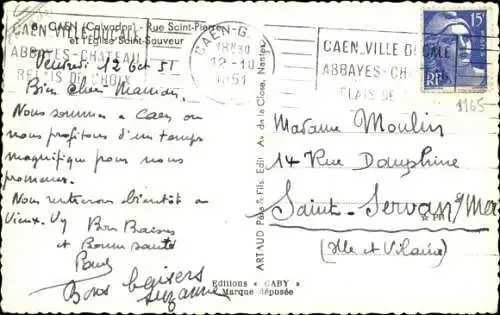 8 - CAEN (Calvados) - Rue Saint-Pierre
et l'Eglise Saint-Sauveur
CAEN, VILLE DUCALE
ABBAYES-CHATEAU
RELAIS DE CHOIX
Vendredi 12 Oct 51
Bien Chère Maman,
Nous sommes à Caen où
nous profitons d'un temps
magnifique pour nous
promener.
Nous rentrerons bientôt au
Vieux-Vy Bons Baisers
et Bonne santé
Paul
Bons baisers
Suzanne
CAEN-G.
18H30
12-10
1951
CAEN, VILLE DUCALE
ABBAYES-CHATEAU
RELAIS DE CHOIX
15F
RF
1165
ARTAUD Père & Fils, Edit Av. de la Close, Nantes
Madame Moulin
14 Rue Dauphine
Saint-Servan s/Mer
(Ille et Vilaine)
Editions « GABY »
Marque déposée